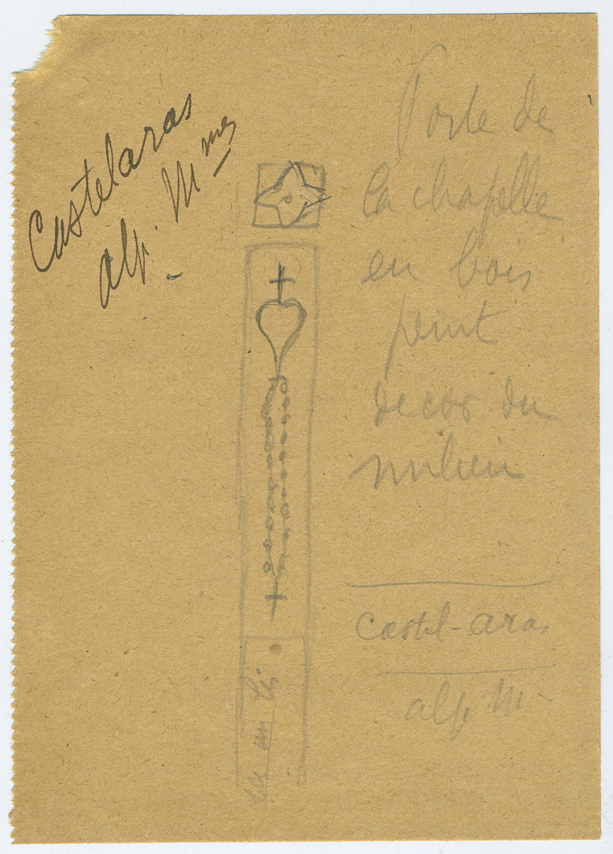 Castelaras
alp. Mmes
Porte de
la chapelle
en bois
peint
decor du
milieu
Castel-aras
alp. M
ici un lis